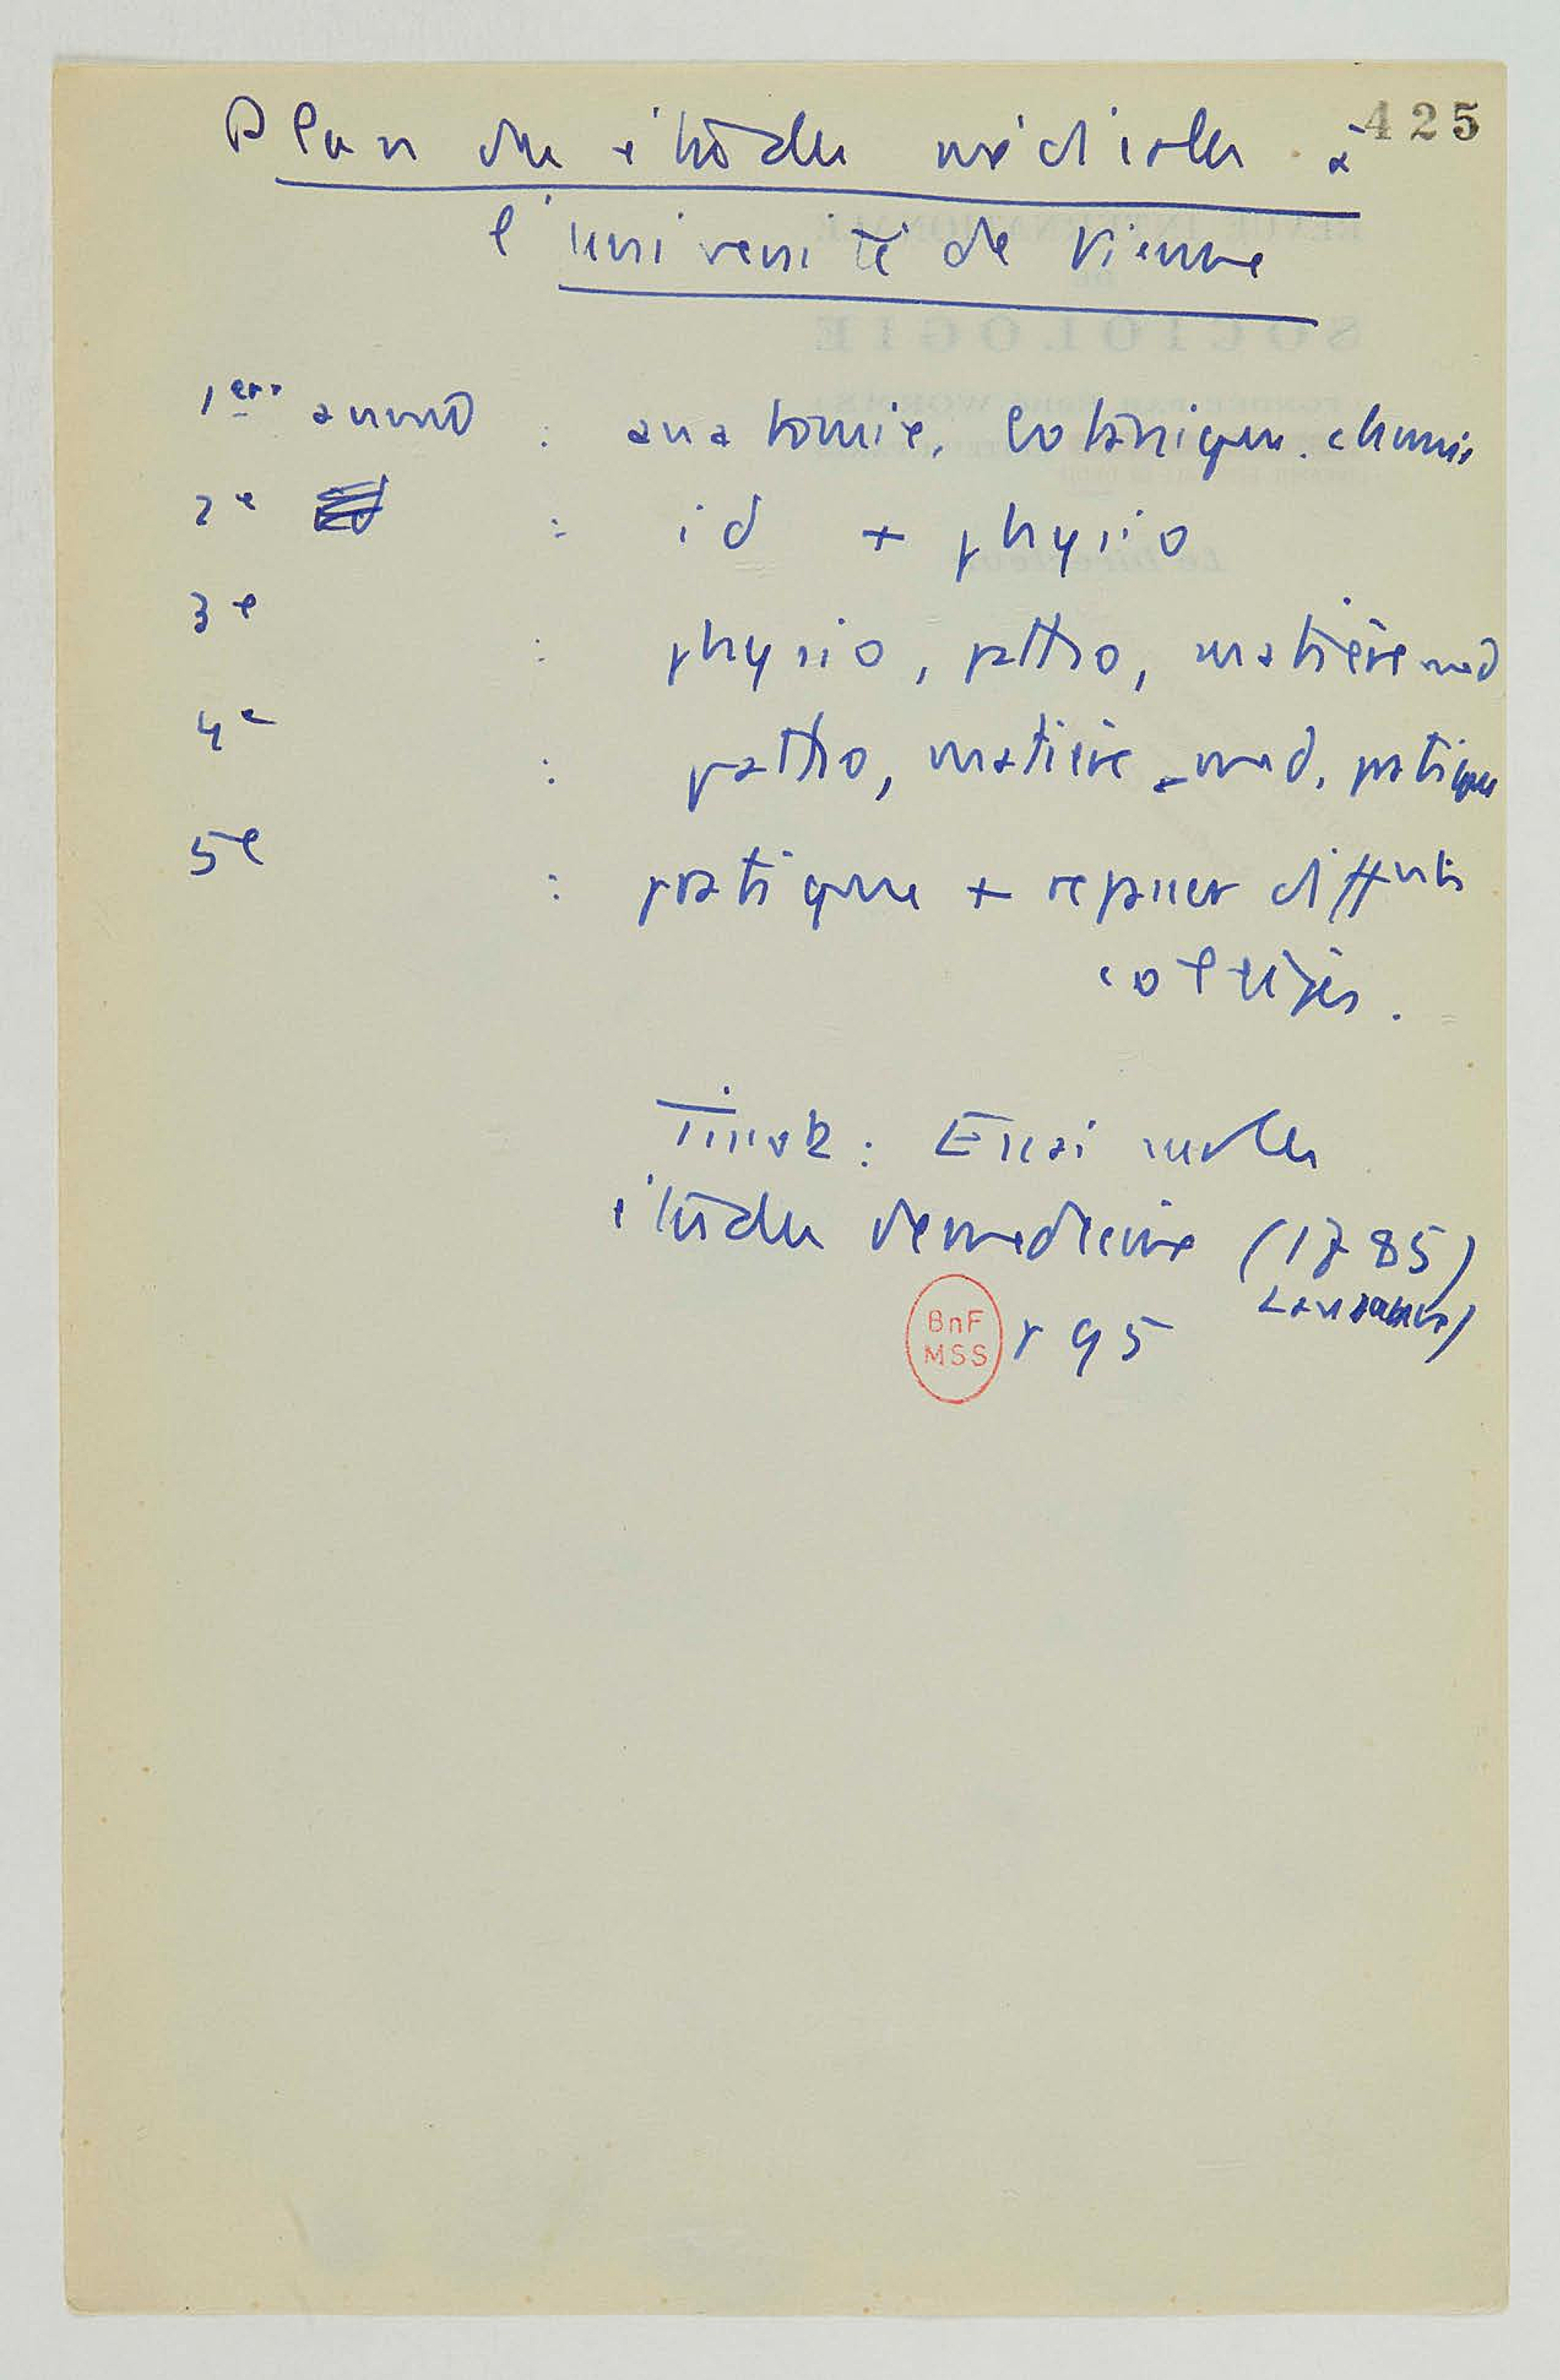 425
Plan des études médicales à
l'université de Vienne
1ère année : anatomie, botanique. chimie
2e : id + physio
3e : physio, patho, matière med
4e : patho, matière med, pratique
5e : pratique + repasser différents
collèges.
Tissot : Essai sur les
études de medecine (1785)
Lausanne)
p 95
BnF
MSS
REVUE INTERNATIONALE
DE
SOCIOLOGIE